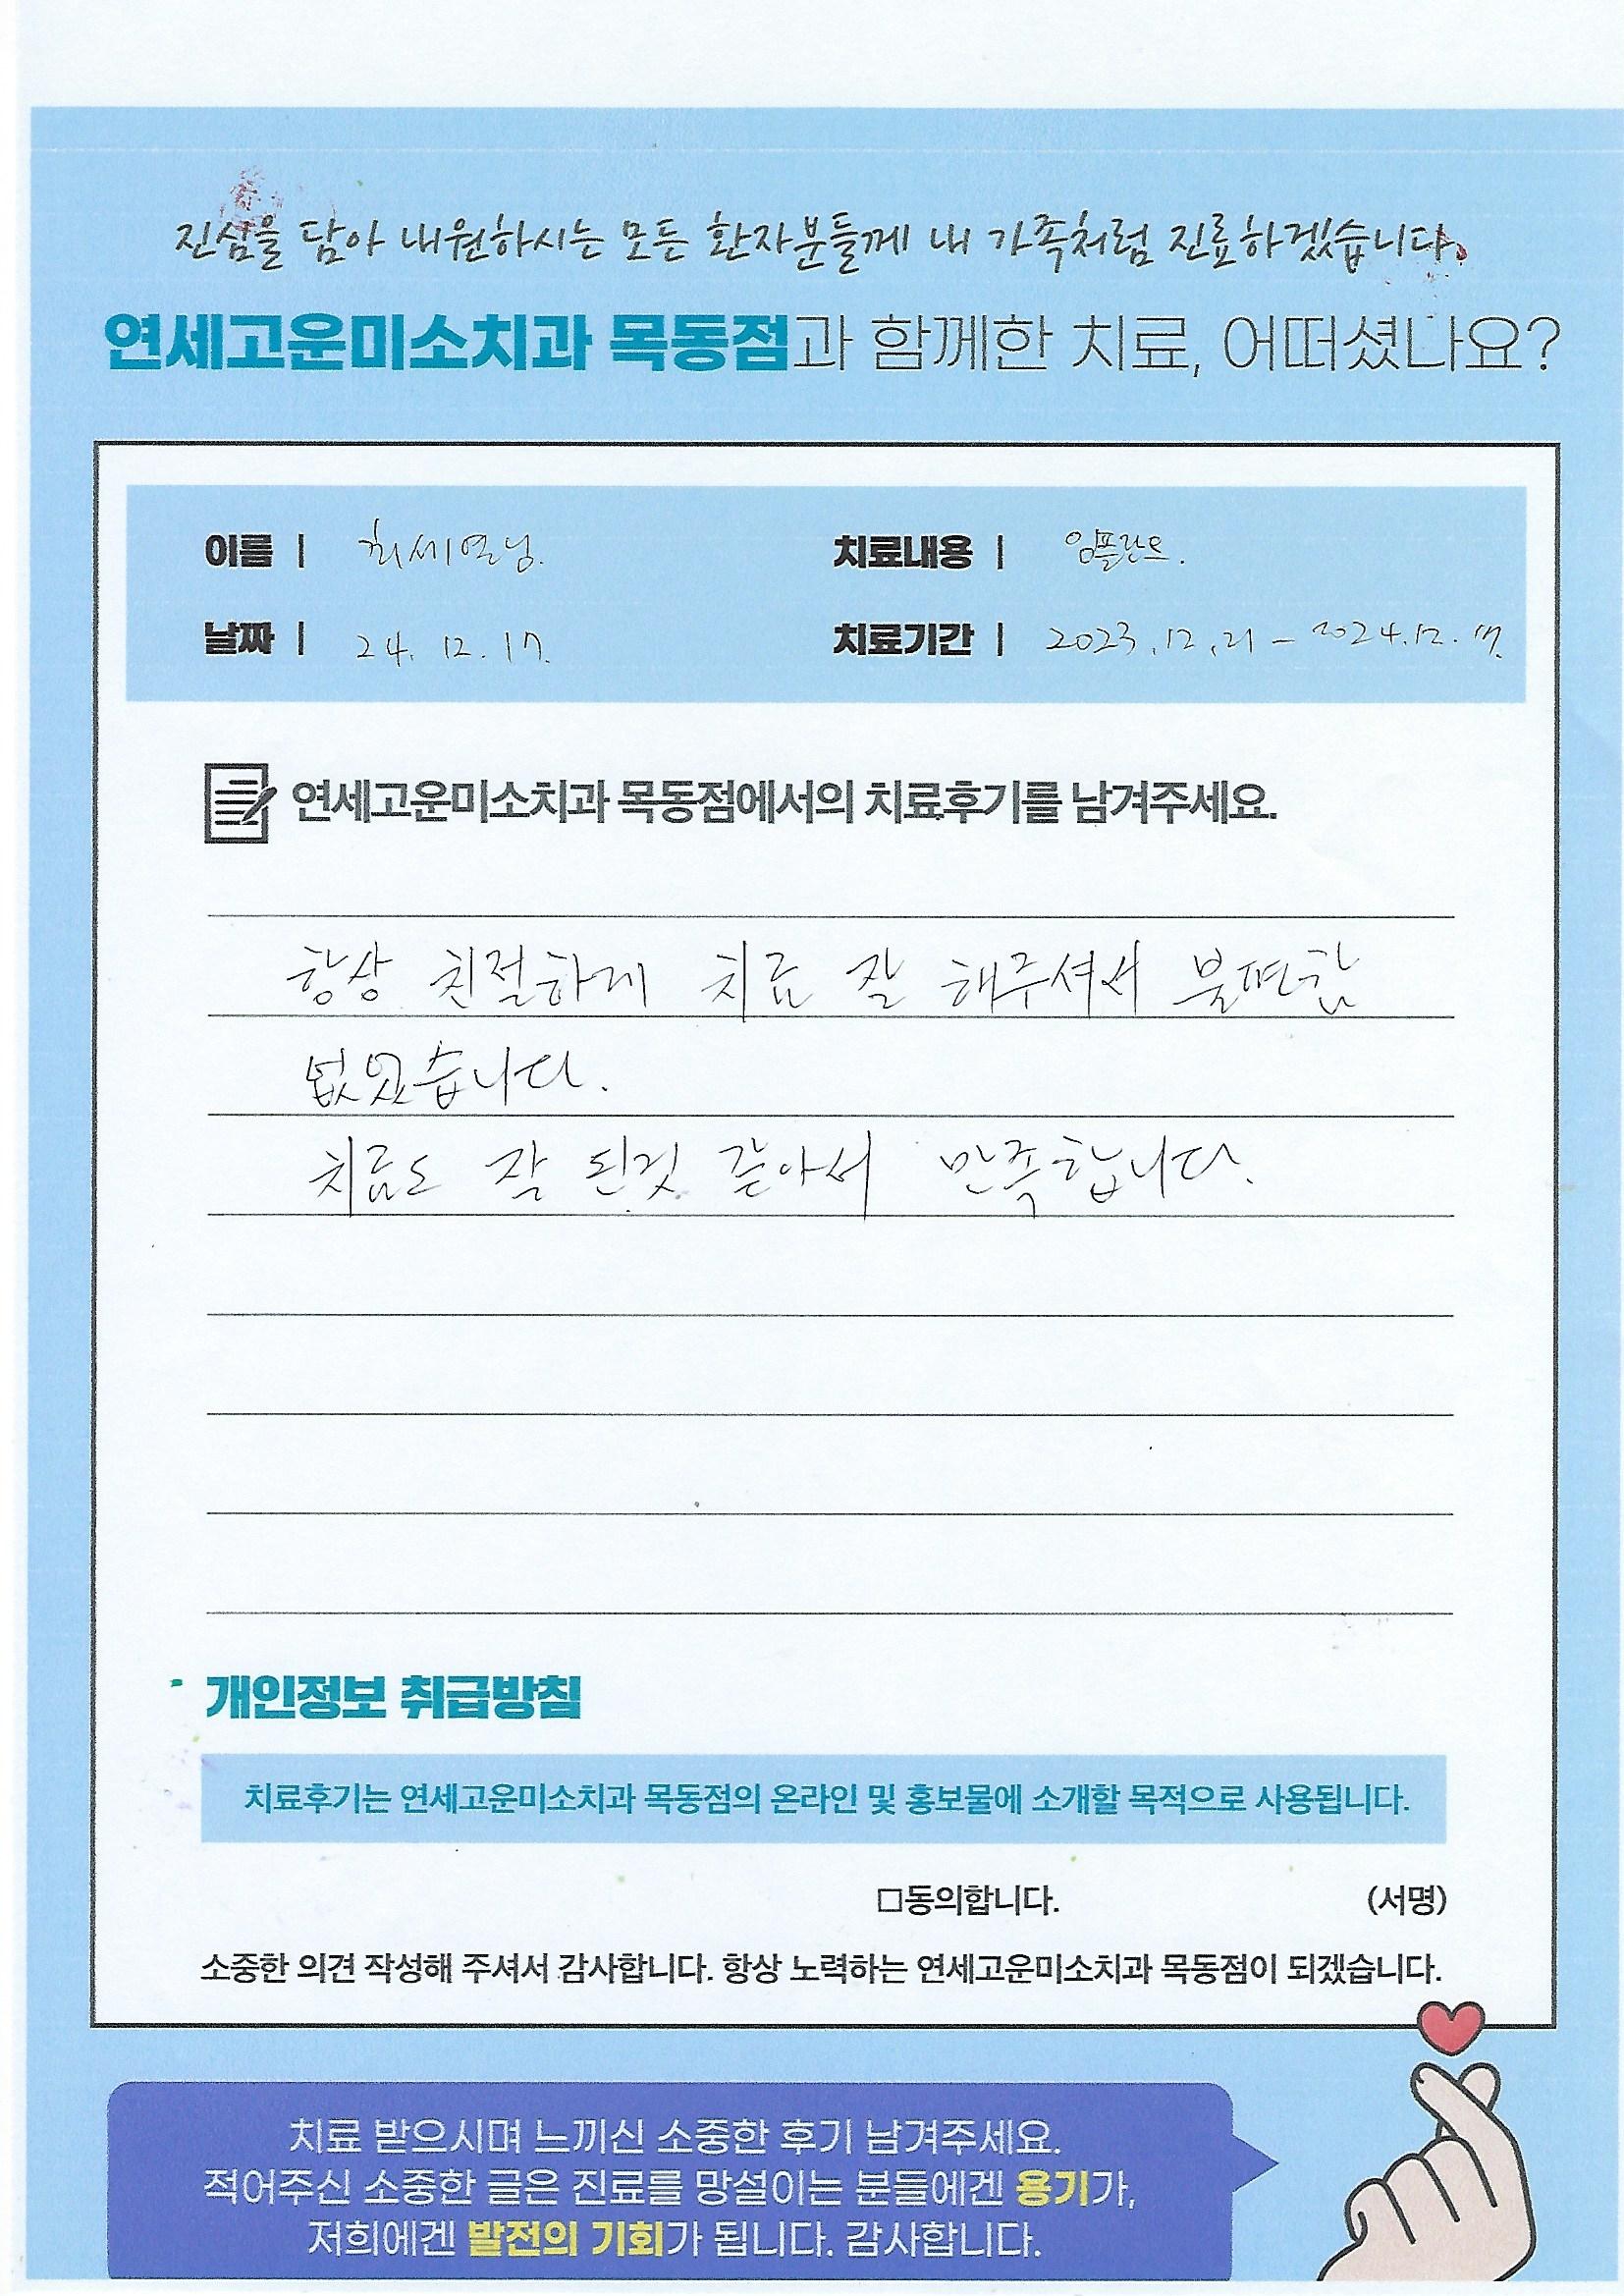 진심을 담아 내원하시는 모든 환자분들께 내 가족처럼 진료하겠습니다.
연세고운미소치과 목동점과 함께한 치료, 어떠셨나요?
이름 | 최세열님.
치료내용 | 임플란트.
날짜 | 24. 12. 17.
치료기간 | 2023.12.21 - 2024.12.17.
연세고운미소치과 목동점에서의 치료후기를 남겨주세요.
항상 친절하게 치료 잘 해주셔서 불편함
없었습니다.
치료도 잘 된것 같아서 만족합니다.
개인정보 취급방침
치료후기는 연세고운미소치과 목동점의 온라인 및 홍보물에 소개할 목적으로 사용됩니다.
□동의합니다. (서명)
소중한 의견 작성해 주셔서 감사합니다. 항상 노력하는 연세고운미소치과 목동점이 되겠습니다.
치료 받으시며 느끼신 소중한 후기 남겨주세요.
적어주신 소중한 글은 진료를 망설이는 분들에겐 용기가,
저희에겐 발전의 기회가 됩니다. 감사합니다.